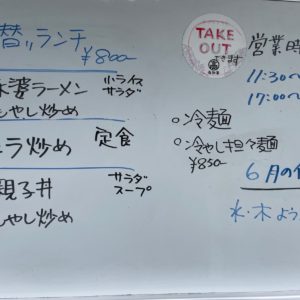 替リランチ
¥800
婆ラーメン 小ライス サラダ
もやし炒め
ニラ炒め 定食
親子丼 サラダ スープ
もやし炒め
TAKE OUT
できます
営業時
11:30〜
17:00〜
○冷麺
○冷やし担々麺
¥850
6月の
水・木よう